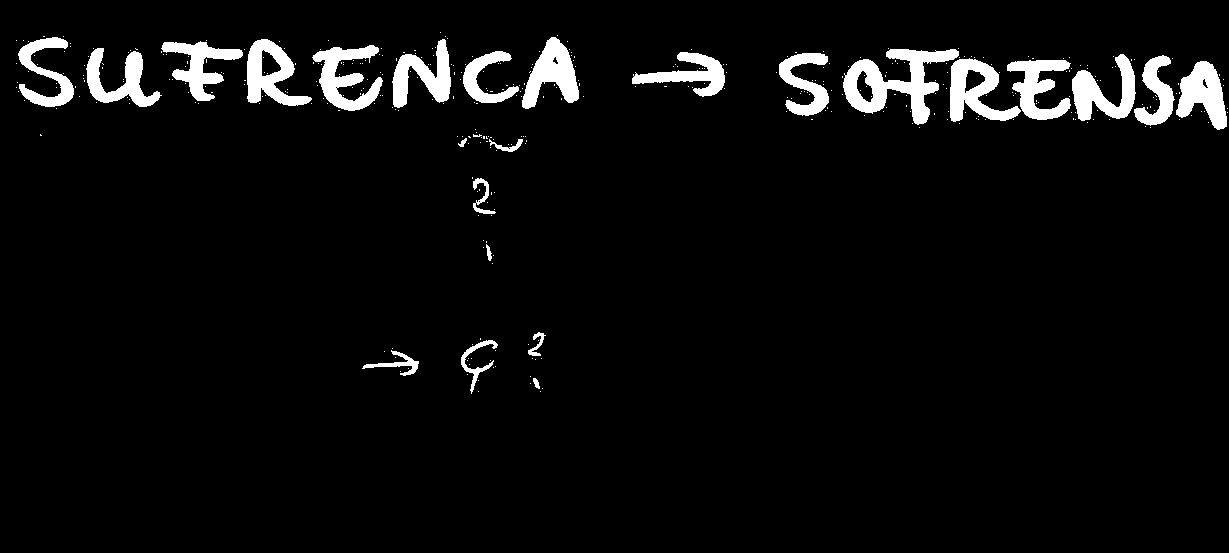 SUFRENCA → SOFRENSA
?
→ Ç ?